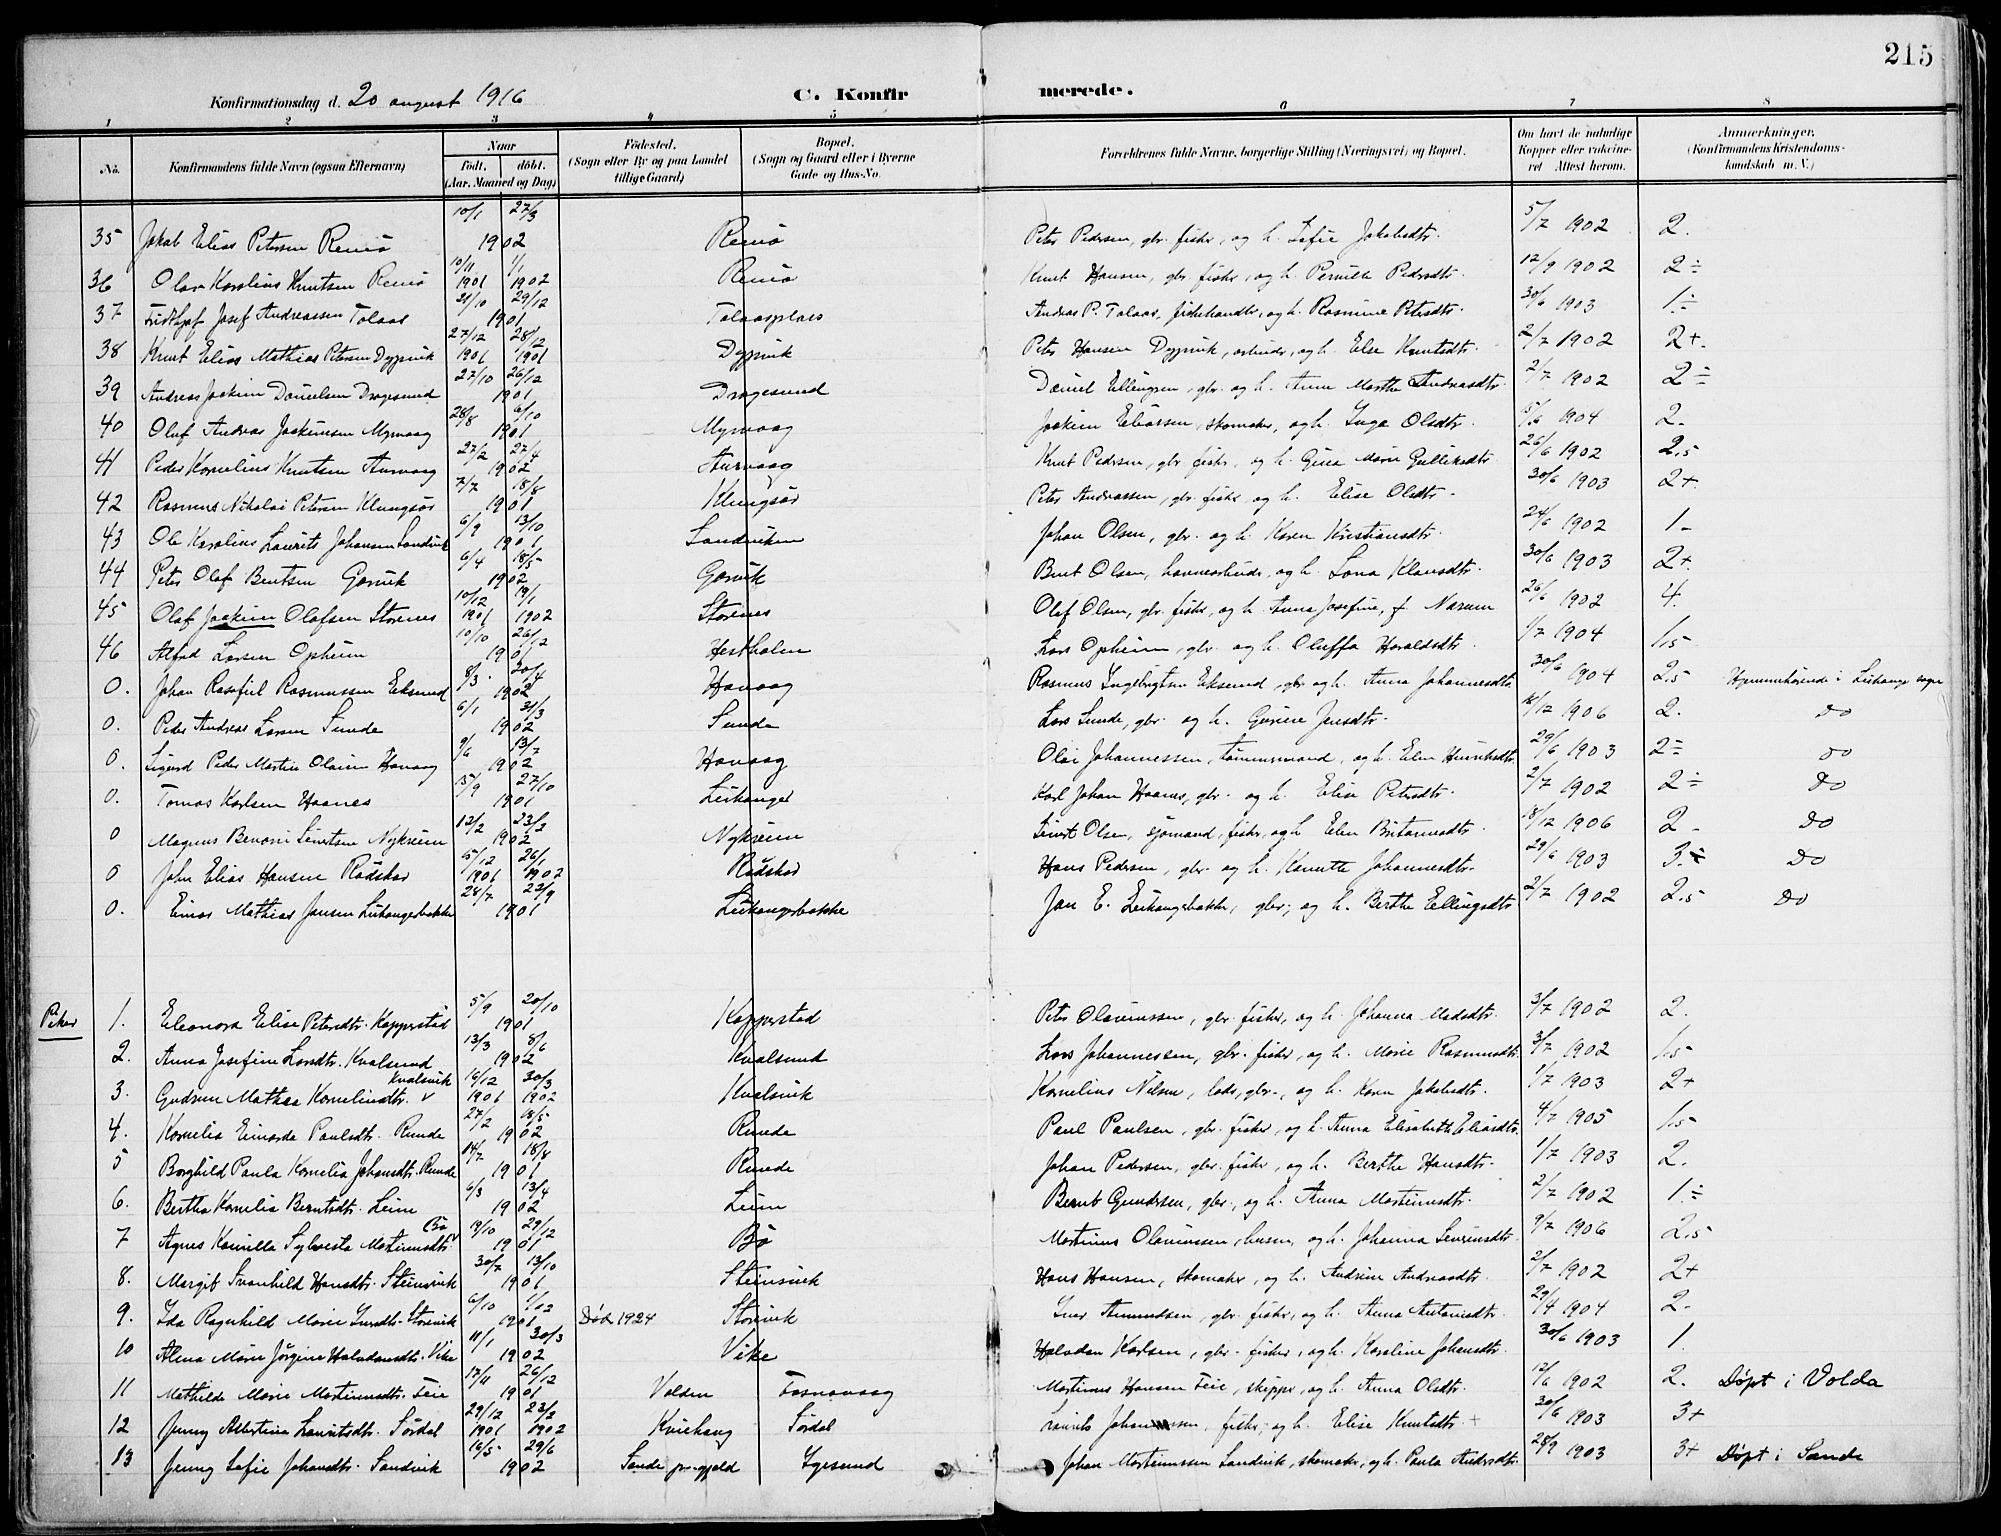 215
Konfirmationsdag d. 20 august 1916 C. Konfir merede.
1 2 3 4 5 6 7 8
No. Konfirmandens fulde Navn (ogsaa Efternavn) Naar født. døbt. (Aar, Maaned og Dag) Fødested. (Sogn eller By og paa Landet tillige Gaard) Bopæl. (Sogn og Gaard eller i Byerne Gade og Hus-No. Forældrenes fulde Navne, borgerlige Stilling (Næringsvei) og Bopæl. Om havt de naturlige Kopper eller vaccineret Attest herom. Anmærkninger. (Konfirmandens Kristendomskundskab m. V.)
35 Jakob Elias Petersen Remø 10/1 27/3 1902 Remø Peter Pedersen, gbr. fisker, og h. Sofie Jakobsdtr. 5/7 1902 2.
36 Olav Karolius Knutsen Remø 10/11 1901 1/1 1902 Remø Knut Hansen, gbr. fisker, og h. Pernille Pedersdtr. 12/9 1902 2÷
37 Fridthjof Josef Andreassen Tolaas 21/10 29/12 1901 Tolaasplass Andreas P. Tolaas, fiskehandler, og h. Rasmine Petersdtr. 30/6 1903 1÷
38 Knut Elias Mathias Petersen Dyppvik 27/12 1901 28/12 1901 Dyppvik Peter Hansen Dyppvik, arbeider, og h. Else Knutsdtr. 2/7 1902 2+.
39 Andreas Joakim Danielsen Dragesund 27/10 26/12 1901 Dragesund Daniel Ellingsen, gbr. og h. Anne Marthe Andreasdtr. 2/7 1902 2÷
40 Oluf Andreas Joakimsen Myrvaag 28/8 6/10 1901 Myrvaag Joakim Eliassen, skomaker, og h. Inga Olsdtr. 5/6 1904 2.
41 Peder Kornelius Knutsen Aurvaag 27/2 27/4 1902 Aurvaag Knut Pedersen, gbr. fisker, og h. Gina Marie Gulliksdtr. 26/6 1902 2,5
42 Rasmus Nikolai Petersen Klungsør 7/7 18/8 1901 Klungsør Peter Andreassen, gbr. fisker, og h. Elise Olsdtr. 30/6 1903 2+
43 Ole Karolius Laurits Johansen Sandvik 6/9 13/10 1901 Sandviken Johan Olsen, gbr. og h. Karen Kristiansdtr. 24/6 1902 1-
44 Peter Olaf Bentsen Gørvik 6/4 18/5 1902 Gørvik Bent Olsen, havnearbeider, og h. Lona Klausdtr. 30/6 1903 2+
45 Olaf Joakim Olafsen Storenes 10/12 1901 19/1 1902 Storenes Olaf Olsen, gbr. fisker, og h. Anna Josefine, f. Nærum 26/6 1902 4.
46 Alfred Larsen Opheim 10/10 26/12 1901 Hestholm Lars Opheim, gbr. og h. Oluffa Haraldsdtr. 1/7 1904 1,5
0. Johan Rasefiel Rasmussen Eiksund 8/3 20/4 1902 Havaag Rasmus Ingebrigtsen Eiksund, gbr og h. Anna Johannesdtr. 30/6 1904 2,5 Hjemmehørende i Leikanger sogn
0. Peder Andreas Larsen Sunde 6/1 31/3 1902 Sunde Lars Sunde, gbr. og h. Gurine Jensdtr. 18/12 1906 2. do
0. Sigurd Peder Martin Olaien Havaag 9/6 13/7 1902 Havaag Olai Johannessen, tømmermand, og h. Elen Henriksdtr. 29/6 1903 2÷ do
0. Tomas Karlsen Haanes 15/9 27/10 1901 Leikanger Karl Johan Haanes, gbr. og h. Elise Petersdtr. 2/7 1902 2÷ Do
0 Magnus Benoni Sivertsen Nykreim 12/2 23/2 1902 Nykreim Sivert Olsen, sjømand, fisker, og h. Elen Britanusdtr. 18/12 1906 2- Do
0 John Elias Hansen Rødskar 15/12 1901 26/1 1902 Rødskar Hans Pedersen, gbr. og h. Kanutte Johannesdtr. 29/6 1903 3÷ Do
0. Einar Mathias Jansen Leikangerbakke 28/7 22/9 1901 Leikangerbakke Jan E. Leikangerbakke, gbr., og h. Berthe Ellingsdtr. 2/7 1902 2,5 Do
Piker 1. Eleonora Elise Petersdtr. Kopperstad 5/9 20/10 1901 Kopperstad Peter Olavinussen, gbr. fisker, og h. Johanna Madsdtr. 3/7 1902 2.
2. Anna Josefine Larsdtr. Kvalsund 13/3 8/6 1902 Kvalsund Lars Johannessen, gbr. fisker, og h. Marie Rasmusdtr. 3/7 1902 1,5
3. Gudrun Mathea Korneliusdtr. Kvalsvik 16/12 1901 30/3 1902 Kvalsvik Kornelius Nilsen, lods, gbr., og h. Karen Jakobsdtr. 1/7 1903 2+
4. Kornelia Einarda Paulsdtr. Runde 27/2 18/5 1902 Runde Paul Paulsen, gbr. fisker, og h. Anna Elisabeth Eliasdtr. 4/7 1905 1,5
5 Borghild Paula Kornelia Johansdtr. Runde 14/7 18/8 1901 Runde Johan Pedersen, gbr. fisker, og h. Berthe Hansdtr. 1/7 1903 2.
6. Bertha Kornelia Berntsdtr. Leine 6/3 13/4 1902 Leine Bernt Gundersen, gbr., og h. Anna Martinusdtr. 2/7 1902 1÷
7 Agnes Kamilla Sylvesta Martinusdtr. Bø 19/10 29/12 1901 Bø Martinus Olavinussen, husm, og h. Johanna Severinsdtr. 9/7 1906 2,5
8. Margit Svanhild Hansdtr. Steinsvik 30/7 13/10 1901 Steinsvik Hans Hansen, skomaker, og h. Andrine Andreasdtr. 2/7 1902 2+
9. Ida Ragnhild Marie Iversdtr. Storevik 6/10 1/12 1901 Død 1924 Storevik Iver Amundsen, gbr. fisker, og h. Anna Antonsdtr. 29/4 1904 2.
10 Alma Marie Jørgine Halvdansdtr. Vike 11/1 30/3 1902 Vike Halvdan Karlsen, gbr. fisker, og h. Karoline Johansdtr. 30/6 1903 1.
11 Mathilde Marie Martinusdtr. Teie 17/11 26/12 1901 Volden Fosnavaag Martinus Hansen Teie, skipper, og h. Anna Olsdtr. 12/6 1902 2. Døpt i Volda
12 Jenny Albertine Lauritsdtr. Sørdal 29/12 1901 23/2 1902 Kvichaug Sørdal Laurits Johansen, fisker, og h. Elise Knutsdtr. 30/6 1903 3+
13 Jenny Sofie Johansdtr. Sandvik 16/5 29/6 1902 Sande pr.gjeld Igesund Johan Martinussen Sandvik, skomaker, og h. Paula Andersdtr. 28/9 1903 3+ Døpt i Sande